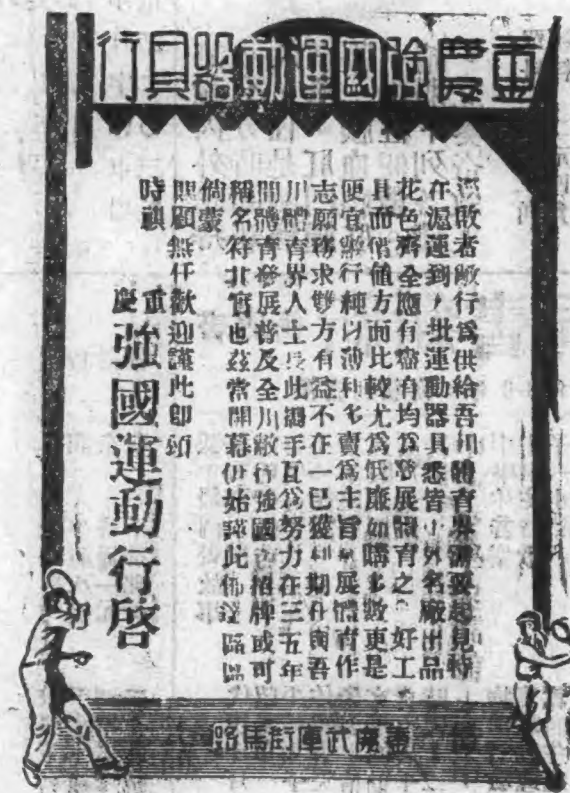 重慶強國運動器具行
敬者敝行為供給吾川體育界需要起見特
在滬運到大批運動器具悉皆中外名廠出品
花色齊全應有盡有均為發展體育之好工
具而價值方面比較尤為低廉如購多數更是
便宜敝行純以薄利多賣為主旨發展體育作
志願務求雙方有益不在一己獲利期什與吾
川體育界人士長此攜手互為努力在三五年
間體育發展普及全川敝行強國之招牌或可
稱名符其實也茲當開幕伊始謹此佈達區區
倘蒙
照顧無任歡迎謹此即頌
時祺
重慶強國運動行啓
重慶武庫街馬路